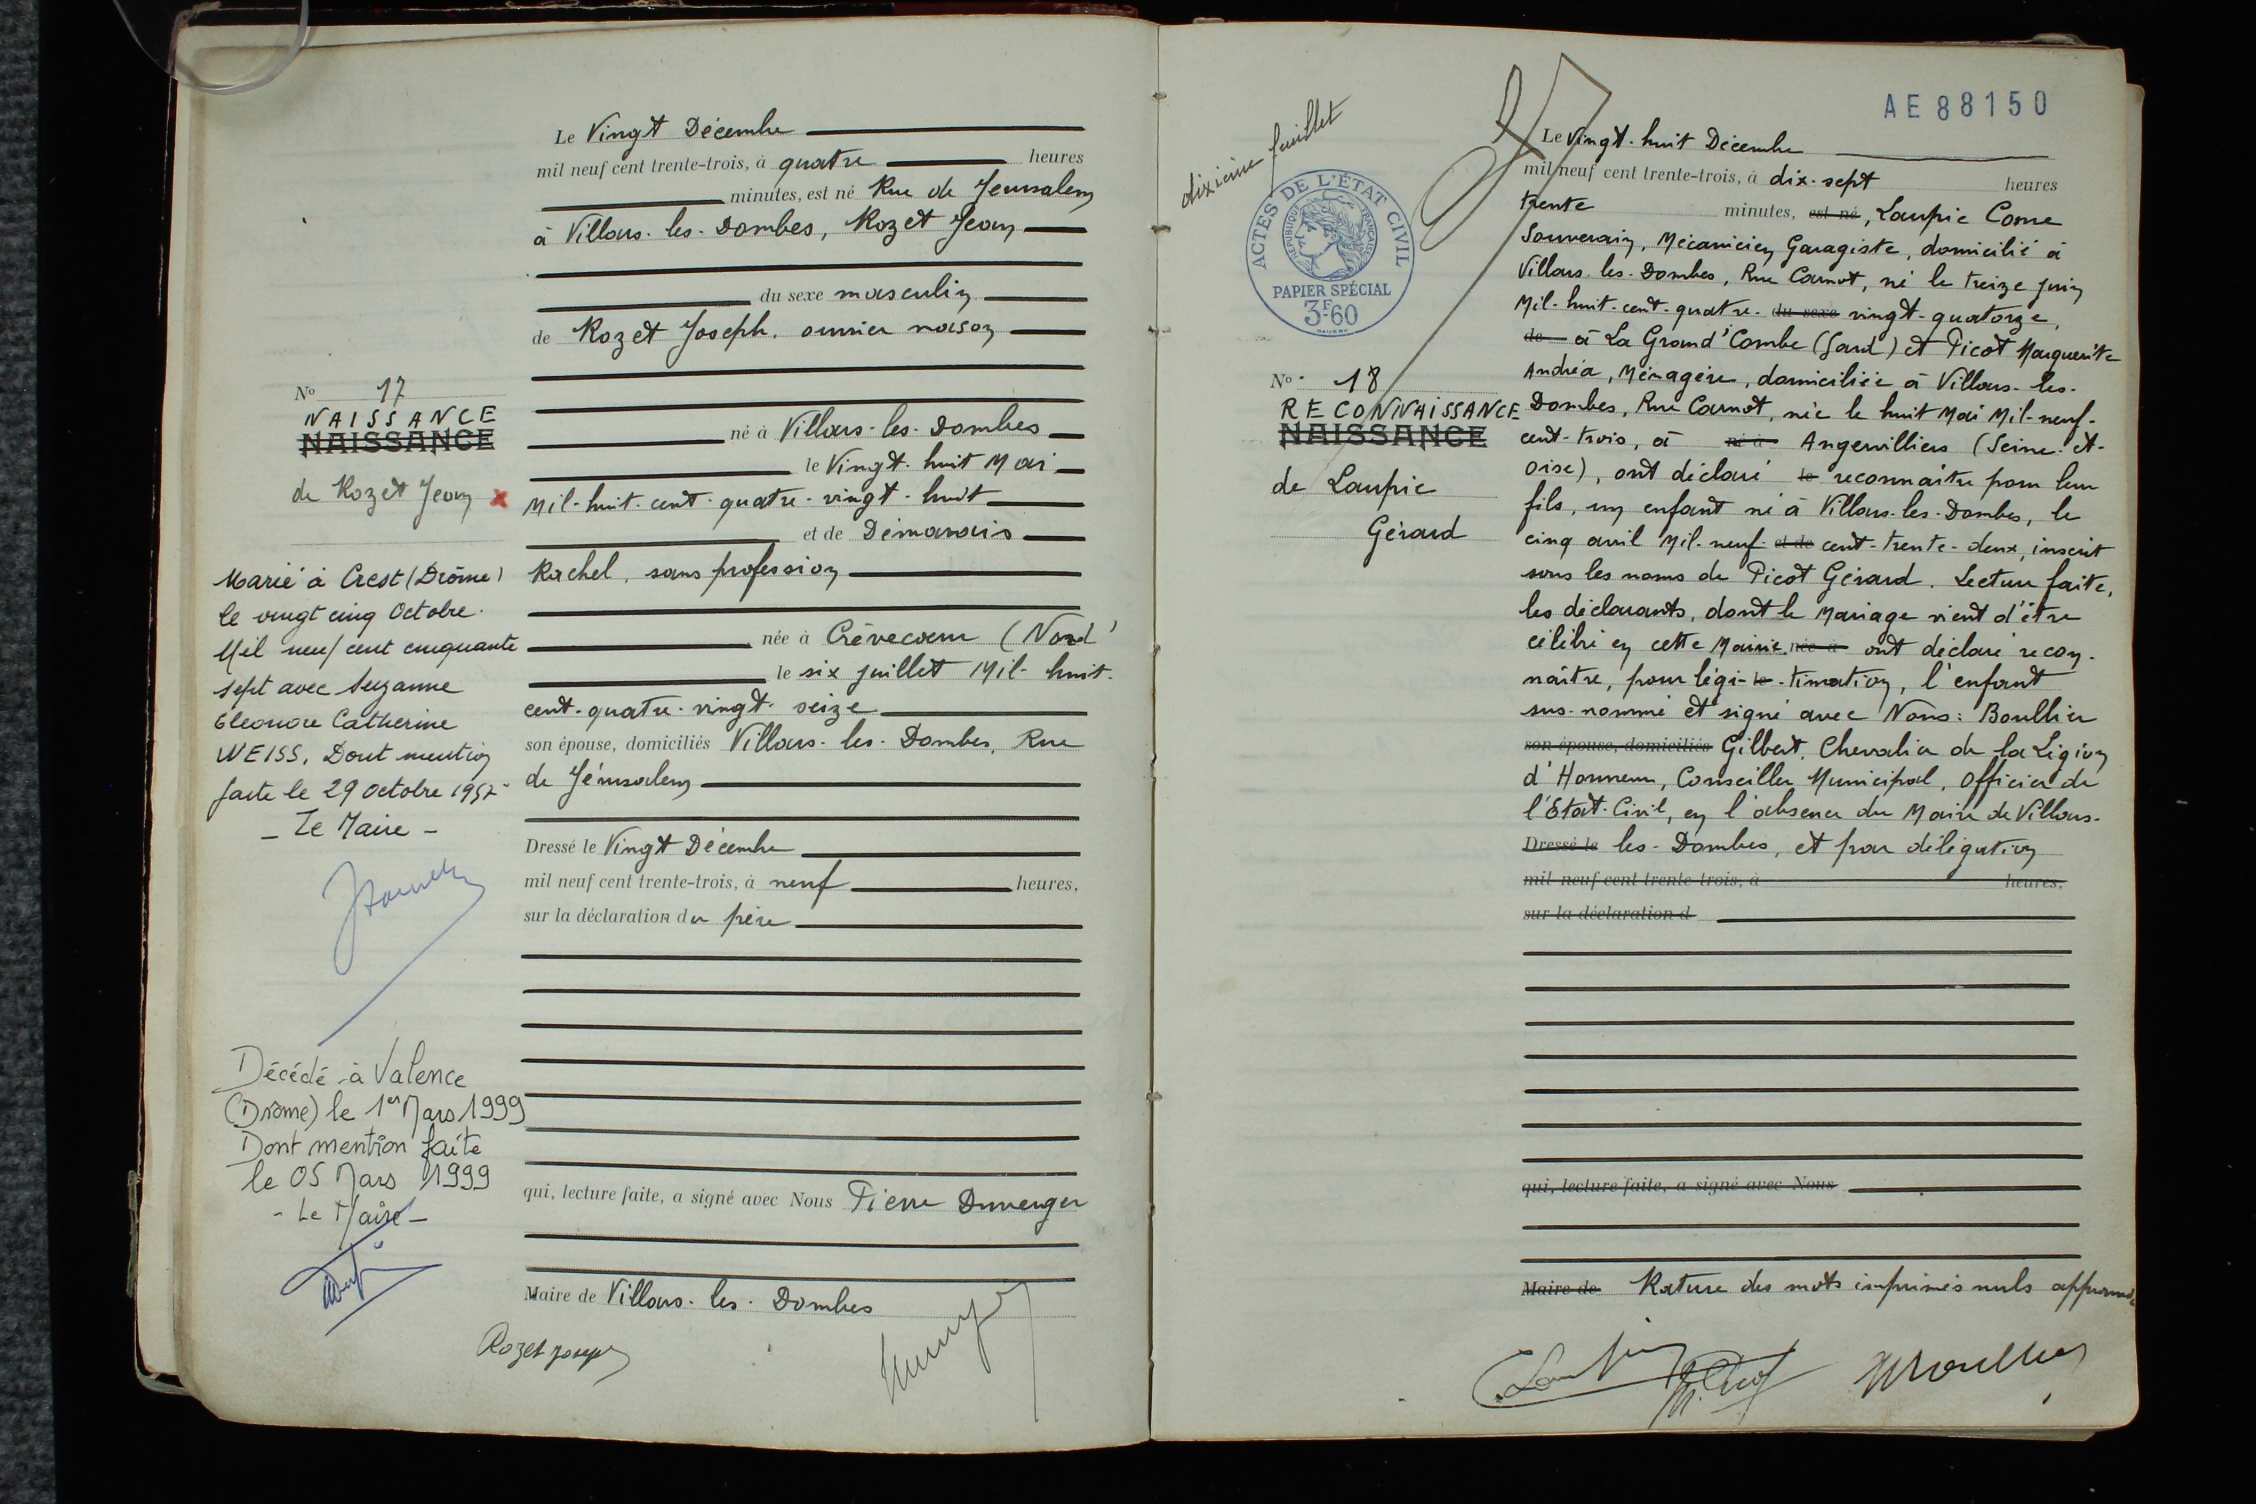 Le Vingt Décembre
mil neuf cent trente-trois, à quatre heures
minutes, est né Rue de Jerusalem
à Villars-les-Dombes, Rozet Jean
du sexe masculin
de Rozet Joseph, ouvrier maçon
né à Villars-les-Dombes
le Vingt-huit Mai
Mil-huit-cent-quatre-vingt-huit
et de Démarais
Rachel, sans profession
née à Crèvecœur (Nord)
le six juillet Mil-huit-
cent-quatre-vingt-seize
son épouse, domiciliés Villars-les-Dombes, Rue
de Jérusalem
Dressé le Vingt Décembre
mil neuf cent trente-trois, à neuf heures,
sur la déclaration du père
qui, lecture faite, a signé avec Nous Pierre Duverger
Maire de Villars-les-Dombes
Rozet Joseph
No 17
NAISSANCE
NAISSANCE
de Rozet Jean
Marié à Crest (Drôme)
le vingt cinq Octobre
Mil neuf cent cinquante
sept avec Suzanne
Eléonore Catherine
WEISS. Dont mention
faite le 29 octobre 1957
- Le Maire -
Décédé à Valence
(Drôme) le 1er Mars 1999
Dont mention faite
le 05 Mars 1999
- Le Maire -
dixième feuillet
ACTES DE L'ÉTAT CIVIL
RÉPUBLIQUE FRANÇAISE
PAPIER SPÉCIAL
3F60
AE88150
No 18
RECONNAISSANCE
NAISSANCE
de Laupie
Gérard
Le Vingt-huit Décembre
mil neuf cent trente-trois, à dix-sept heures
trente minutes, est né, Laupie Come
Souverain, Mécanicien Garagiste, domicilié à
Villars-les-Dombes, Rue Carnot, né le treize juin
Mil-huit-cent-quatre- du sexe vingt-quatorze,
de à La Grand'Combe (Gard) et Picot Marguerite
Andréa, Ménagère, domiciliée à Villars-les-
Dombes, Rue Carnot, née le huit Mai Mil-neuf-
cent-trois, à né à Angervilliers (Seine-et-
oise), ont déclaré le reconnaître pour leur
fils, un enfant né à Villars-les-Dombes, le
cinq avril Mil-neuf- et de cent-trente-deux, inscrit
sous les noms de Picot Gérard. Lecture faite,
les déclarants, dont le Mariage vient d'être
célébré en cette Mairie. née à ont déclaré recon-
naître, pour légi- le -timation, l'enfant
sus-nommé et signé avec Nous: Boullier
son épouse, domiciliés Gilbert, Chevalier de la Légion
d'Honneur, Conseiller Municipal, Officier de
l'Etat-Civil, en l'absence du Maire de Villars-
Dressé le les-Dombes, et par délégation
mil neuf cent trente-trois, à heures,
sur la déclaration d
qui, lecture faite, a signé avec Nous
Maire de Rature des mots imprimés nuls approuvée